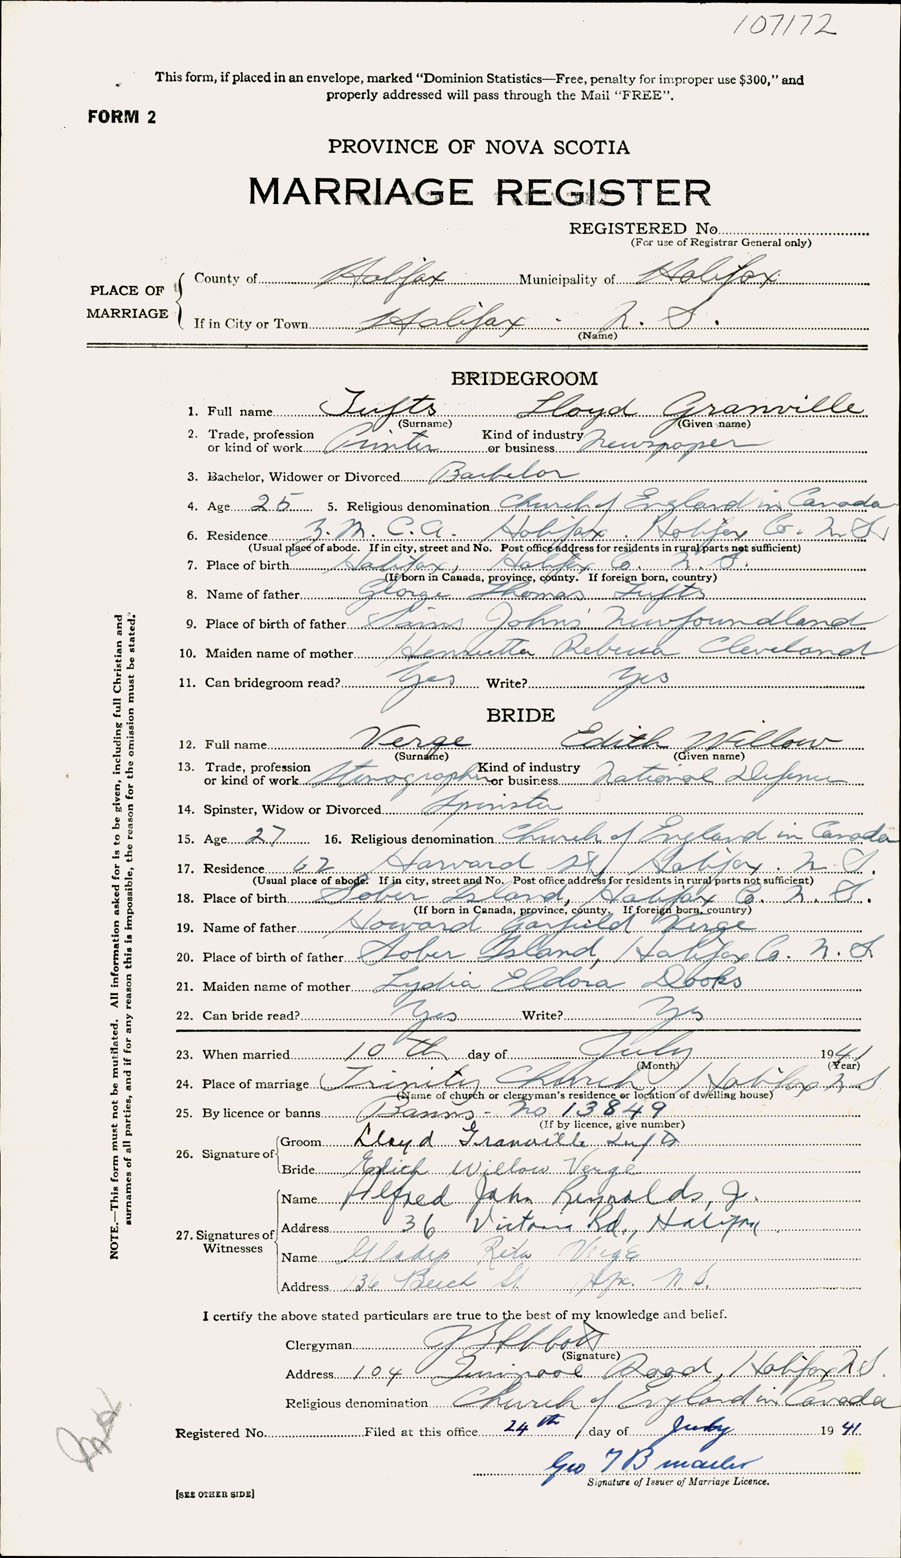 107172
This form, if placed in an envelope, marked "Dominion Statistics—Free, penalty for improper use $300," and
properly addressed will pass through the Mail "FREE".
FORM 2
PROVINCE OF NOVA SCOTIA
MARRIAGE REGISTER
REGISTERED No
(For use of Registrar General only)
PLACE OF MARRIAGE
County of Halifax Municipality of Halifax
If in City or Town Halifax - N. S.
(Name)
BRIDEGROOM
1. Full name Tufts Lloyd Granville
(Surname) (Given name)
2. Trade, profession or kind of work Printer Kind of industry or business Newspaper
3. Bachelor, Widower or Divorced Bachelor
4. Age 25 5. Religious denomination Church of England in Canada
6. Residence Y.M.C.A. Halifax. Halifax Co. N.S.
(Usual place of abode. If in city, street and No. Post office address for residents in rural parts not sufficient)
7. Place of birth Halifax, Halifax Co. N. S.
(If born in Canada, province, county. If foreign born, country)
8. Name of father George Thomas Tufts
9. Place of birth of father Saint John's Newfoundland
10. Maiden name of mother Henrietta Rebecca Cleveland
11. Can bridegroom read? Yes Write? Yes
BRIDE
12. Full name Verge Edith Willow
(Surname) (Given name)
13. Trade, profession or kind of work Stenographer Kind of industry or business National Defence
14. Spinster, Widow or Divorced Spinster
15. Age 27 16. Religious denomination Church of England in Canada
17. Residence 62 Harvard St, Halifax. N. S.
(Usual place of abode. If in city, street and No. Post office address for residents in rural parts not sufficient)
18. Place of birth Sober Island, Halifax Co. N. S.
(If born in Canada, province, county. If foreign born, country)
19. Name of father Howard Garfield Verge
20. Place of birth of father Sober Island, Halifax Co. N. S
21. Maiden name of mother Lydia Eldora Dooks
22. Can bride read? Yes Write? Yes
23. When married 10th day of July 1941
(Month) (Year)
24. Place of marriage Trinity Church Halifax N S
(Name of church or clergyman's residence or location of dwelling house)
25. By licence or banns Banns - No 13849
(If by licence, give number)
26. Signature of
Groom Lloyd Granville Tufts
Bride Edith Willow Verge
27. Signatures of Witnesses
Name Alfred John Reynolds, Jr.
Address 36 Victoria Rd., Halifax.
Name Gladys Rita Verge
Address 136 Beech St Hfx. N.S.
I certify the above stated particulars are true to the best of my knowledge and belief.
Clergyman
(Signature)
Address 104 Road, Halifax N S.
Religious denomination Church of England in Canada
Registered No. Filed at this office 24th day of July 1941.
Geo
Signature of Issuer of Marriage Licence.
[SEE OTHER SIDE]
NOTE.—This form must not be mutilated. All information asked for is to be given, including full Christian and
surnames of all parties, and if for any reason this is impossible, the reason for the omission must be stated.